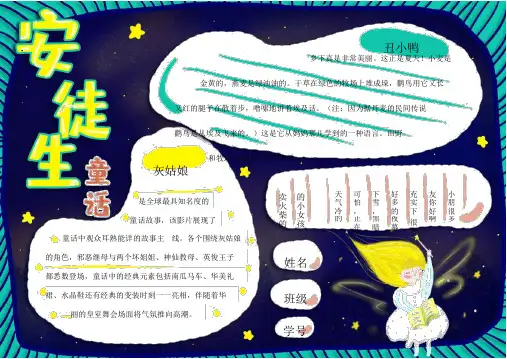 安徒生
童话
丑小鸭
乡下真是非常美丽。这正是夏天！小麦是
金黄的，燕麦是绿油油的。干草在绿色的牧场上堆成垛，鹳鸟用它又长
又红的腿子在散着步，噜嗦地讲着埃及话。（注：因为据丹麦的民间传说
鹳鸟是从埃及飞来的。）这是它从妈妈那儿学到的一种语言。田野
和牧
灰姑娘
是全球最具知名度的
童话故事，该影片展现了
童话中观众耳熟能详的故事主 线，各个围绕灰姑娘
的角色，邪恶继母与两个坏姐姐、神仙教母、英俊王子
都悉数登场，童话中的经典元素包括南瓜马车、华美礼
裙、水晶鞋还有经典的变装时刻一一亮相，伴随着华
丽的皇室舞会场面将气氛推向高潮。
小朋很多
友你好啊
充实下很
好多的夜幕
下雪，暗
可怕，止在
天气冷的
的小女孩
卖火柴的
姓名
班级
学号